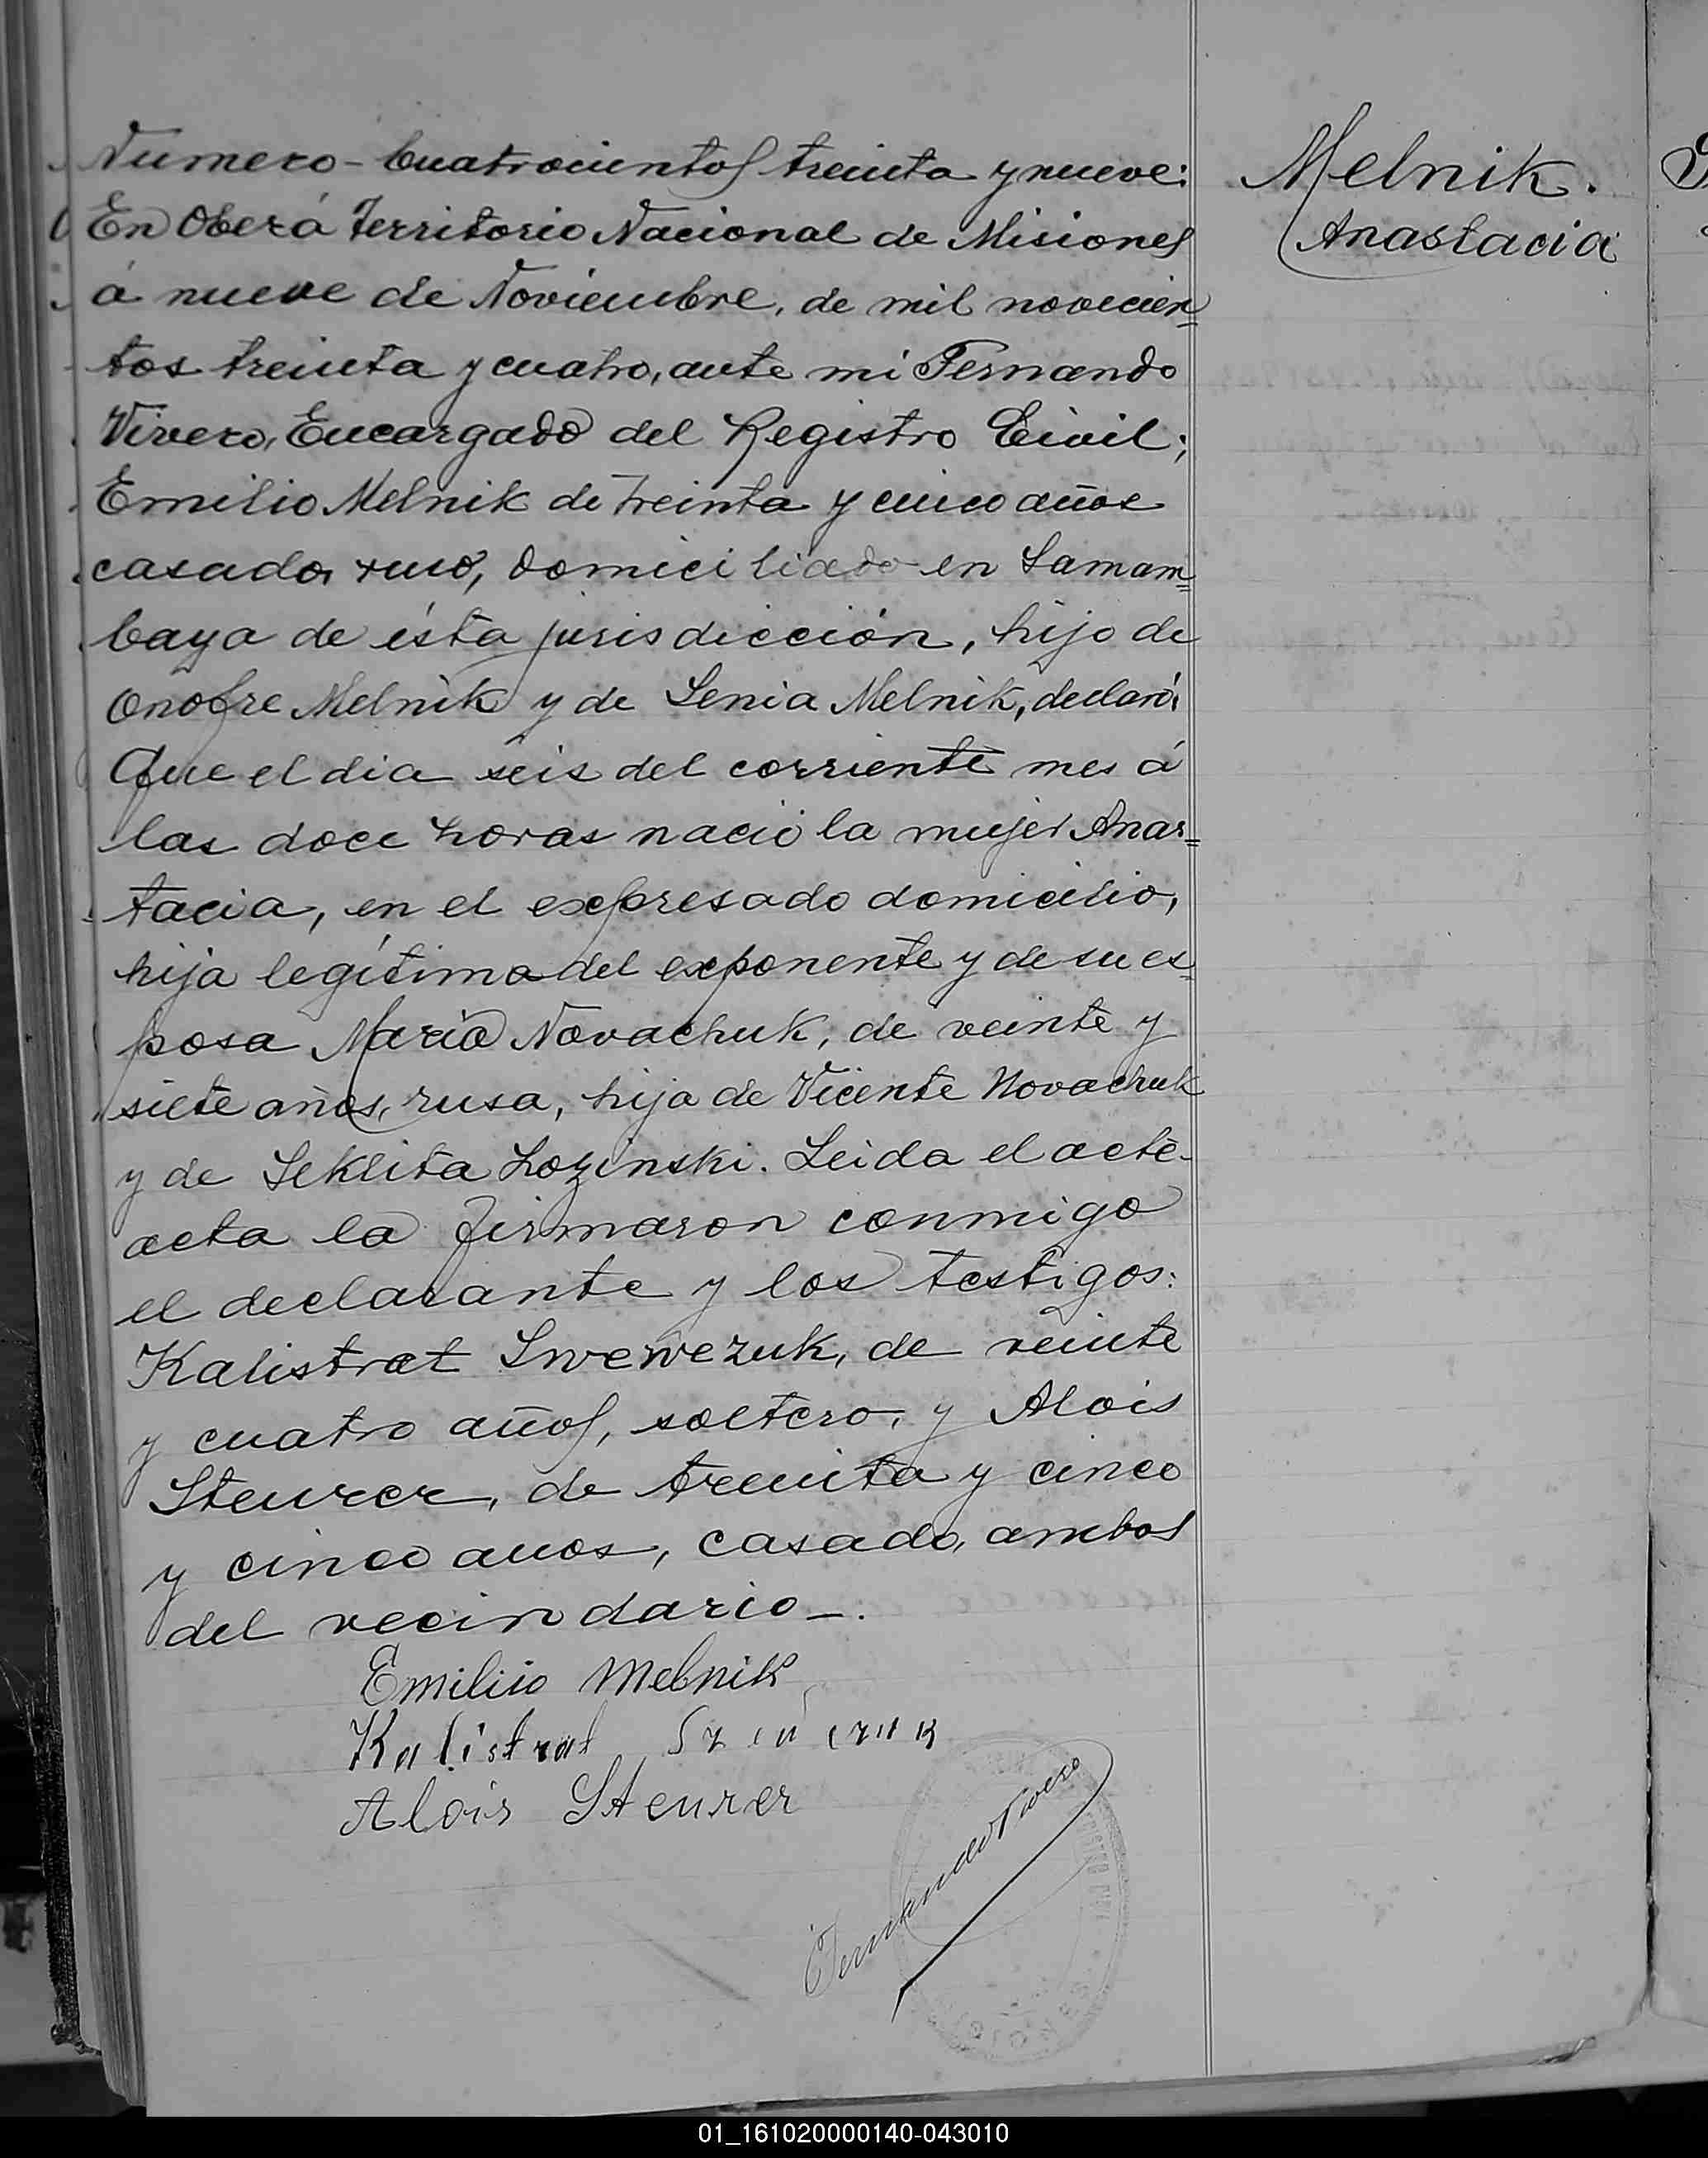 Melnik.
Anastacia
Numero - Cuatrocientos treinta y nueve:
En Oberá Territorio Nacional de Misiones
á nueve de Noviembre, de mil novecien=
tos treinta y cuatro, ante mi Fernando
Vivero, Encargado del Registro Civil;
Emilio Melnik de treinta y cinco años
casado, ruso, domiciliado en Samam=
baya de ésta jurisdicción, hijo de
Onofre Melnik y de Senia Melnik, declaró:
Que el dia seis del corriente mes á
las doce horas nació la mujer Anas=
tacia, en el expresado domicilio,
hija legítima del exponente y de su es=
posa Maria Novachuk, de veinte y
siete años, rusa, hija de Vicente Novachuk
y de Seklita Lozinski. Leida el acte-
acta la firmaron conmigo
el declarante y los testigos:
Kalistrat Swewezuk, de veinte
y cuatro años, soltero, y Alois
Steurer, de treinta y cinco
y cinco anos, casado, ambos
del vecindario-.
Emilio Melnik
Kalistrat
Alois Steurer
Fernando Vivero
01_161020000140-043010